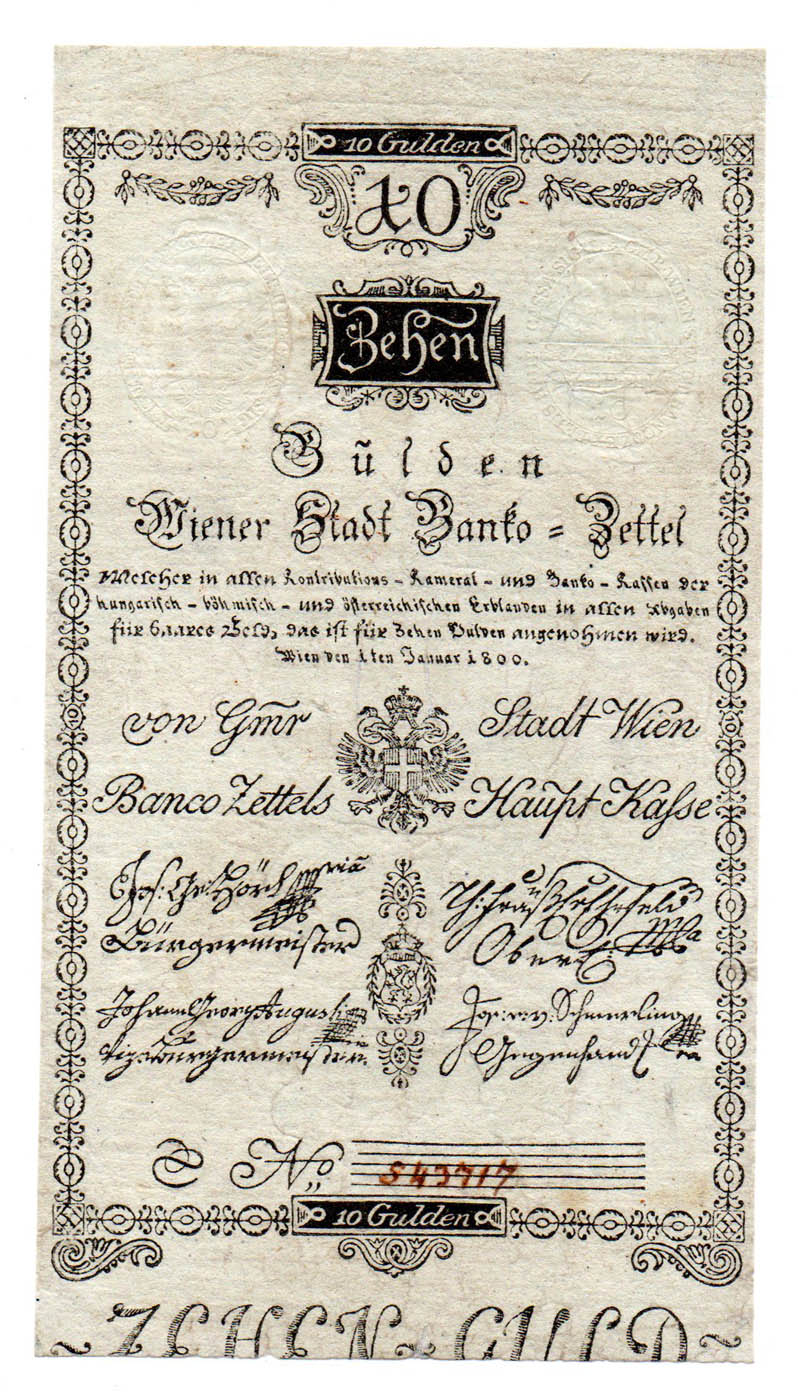 10 Gulden
10
Zehen
Gulden
Wiener Stadt Banko = Zettel
Welcher in allen Kontributions - Kameral - und Banko - Kassen der
hungarisch - böhmisch - und österreichischen Erblanden in allen Abgaben
für baares Geld, das ist für Zehen Gulden angenohmen wird.
Wien den 1ten Januar 1800.
von Gmr Stadt Wien
Banco Zettels Haupt Kasse
Jos: Geo: Hörl
Bürgermeister Ober
Johann Georg Augusti Jos: v. Schmerling
Bürgermeister Gegenhand
No 543717
10 Gulden
ZEHEN GULD